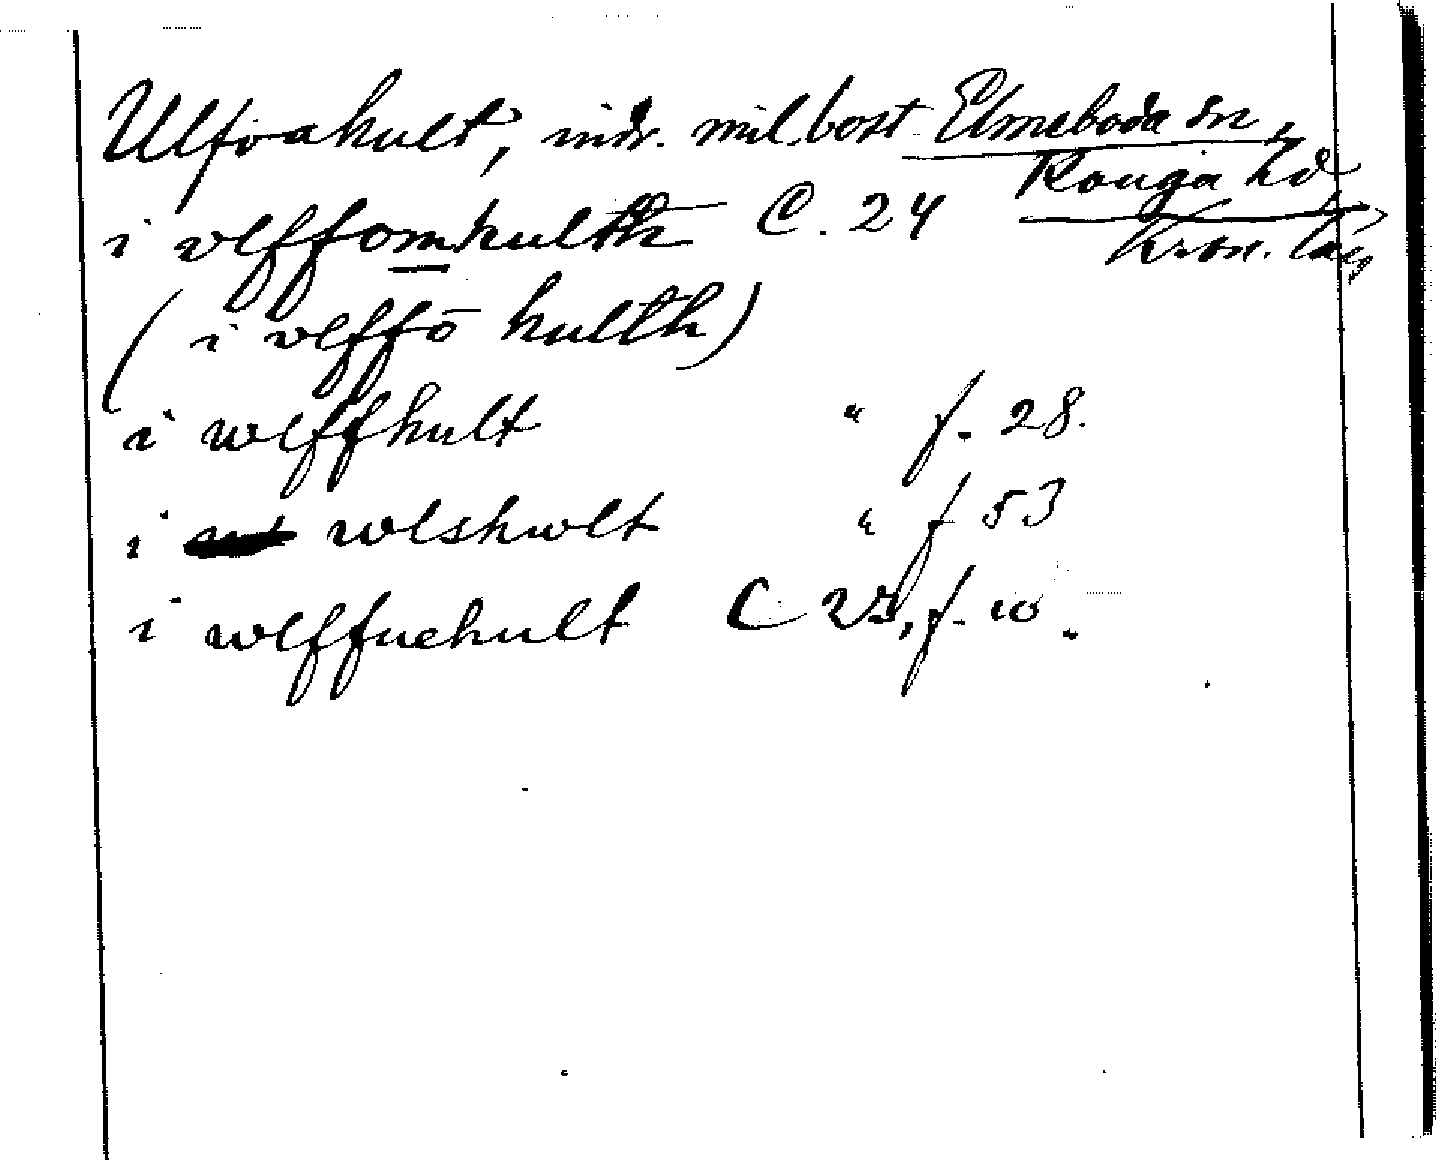 Ulfvakult, indr. mil. bost. Elmeboda sn,
Konga hd,
i vlffomkulth C. 24 Kron. län
(i vlffō kulth)
i wlffhult " f. 28.
i wlshwlt " f 53
i wlffuehult C 25, f. 10.